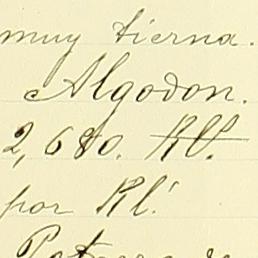 muy tierna.
Algodon.
2,680. Kl.
por Kl.